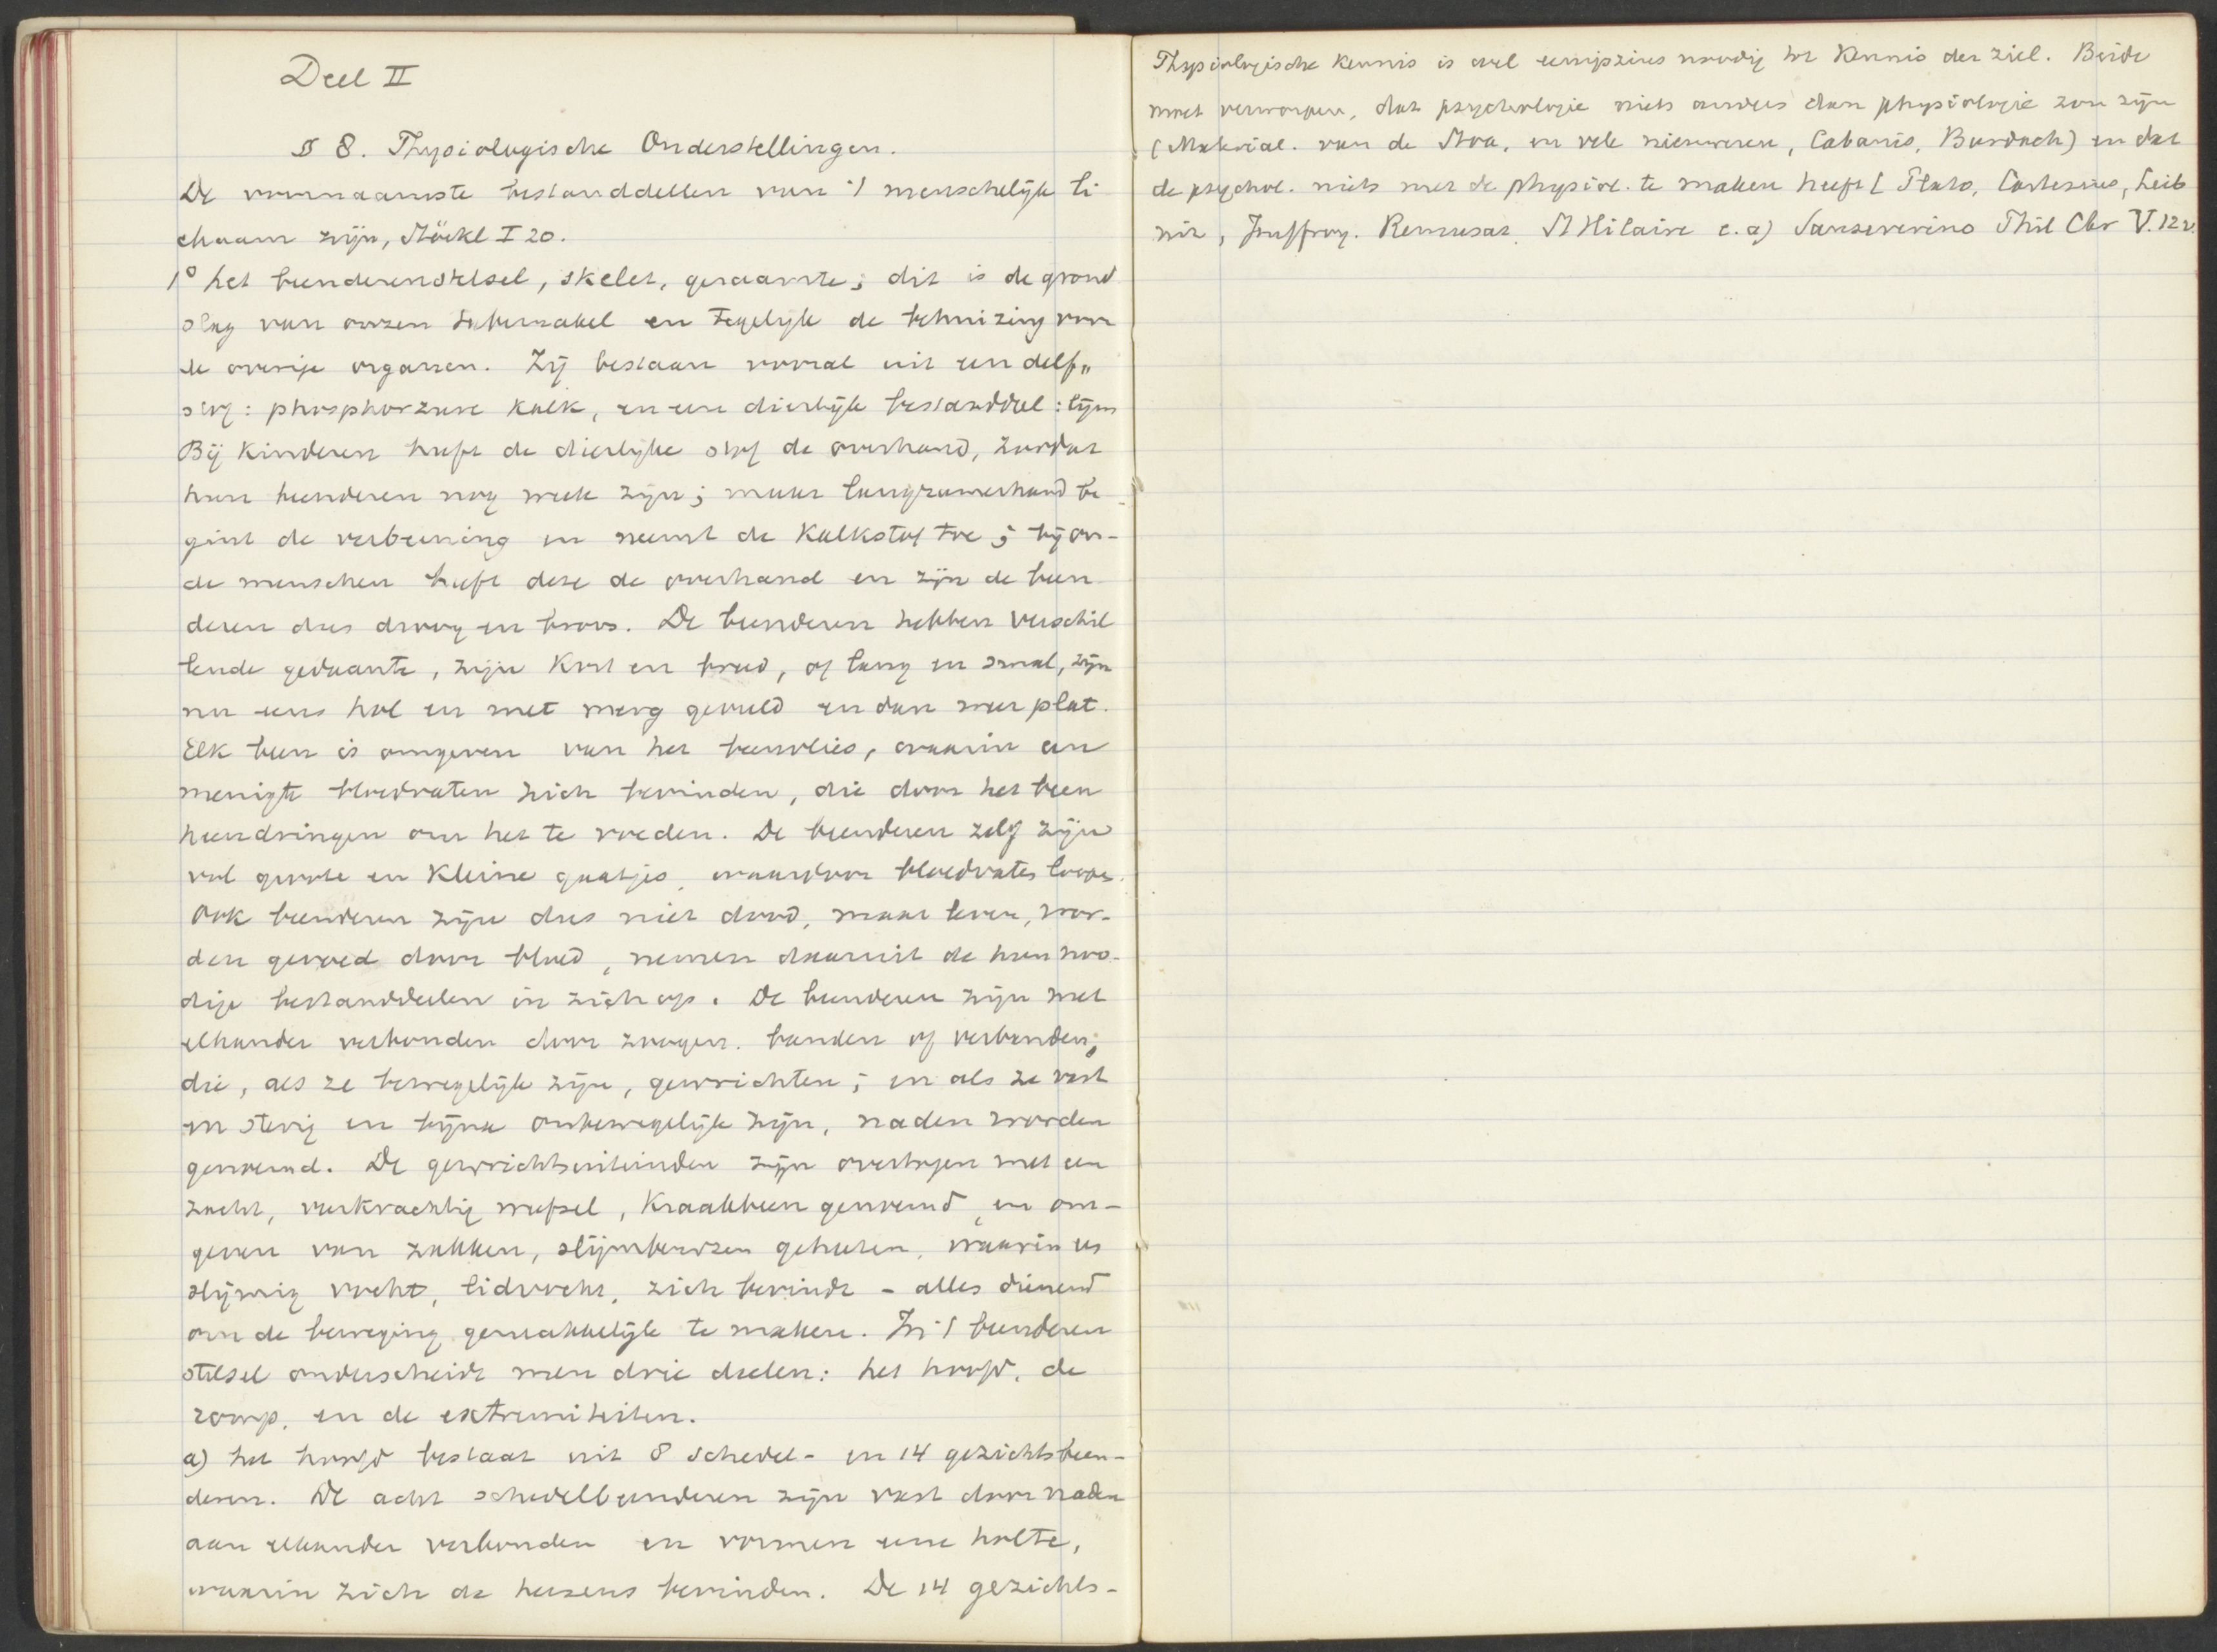 Deel II
§ 8. Physiologische Onderstellingen.
De voornaamste bestanddeelen van 't menschelijk li
chaam zijn, Stöckl I 20.
1° het beenderenstelsel, skelet, geraamte; dit is de grond
slag van onzen tabernakel en tegelijk de behuizing voor
de overige organen. Zij bestaan vooral uit een delf„
stof: phosphorzure kalk, en een dierlijk bestanddeel: lijm
Bij kinderen heeft de dierlijke stof de overhand, zoodat
hun beenderen nog week zijn; maar langzamerhand be
gint de verbeening en neemt de kalkstof toe; bij ou-
de menschen heeft deze de overhand en zijn de been
deren dus droog en broos. De beenderen hebben verschil
lende gedaante, zijn kort en breed, of lang en smal, zijn
nu eens hol en met merg gevuld en dan weer plat.
Elk been is omgeven van het beenvlies, waarin een
menigte bloedvaten zich bevinden, die door het been
heendringen om het te voeden. De beenderen zelf zijn
vol groote en kleine gaatjes, waardoor bloedvaten loopen.
Ook beenderen zijn dus niet dood, maar leven, wor-
den gevoed door bloed, nemen daaruit de hun noo-
dige bestanddeelen in zich op. De beenderen zijn met
elkander verbonden door zoogen. banden of verbanden;
die, als ze bewegelijk zijn, gewrichten; en als ze vast
en stevig en bijna onbewegelijk zijn, naden worden
genoemd. De gewrichtsuiteinden zijn overtogen met een
zacht, veerkrachtig weefsel, kraakbeen genoemd, en om-
geven van zakken, slijmbeurzen geheeten, waarin een
slijmig vocht, lidvocht, zich bevindt - alles dienend
om de beweging gemakkelijk te maken. In 't beenderen
stelsel onderscheidt men drie deelen: het hoofd, de
romp, en de extremiteiten.
a) het hoofd bestaat uit 8 schedel- en 14 gezichtsbeen-
deren. De acht schedelbeenderen zijn vast door naden
aan elkander verbonden en vormen eene holte,
waarin zich de hersens bevinden. De 14 gezichts-
Physiologische kennis is wel eenigszins noodig tot kennis der ziel. Beide
moet verworpen, dat psychologie niets anders dan physiologie zou zijn
(Material. van de Stoa, en vele nieuweren, Cabanis, Burdach) en dat
de psychol. niets met de physiol. te maken heeft (Plato, Cartesius, Leib
nitz, Jouffroy. Remusat, St Hilaire e.a) Sanseverino Phil Chr V. 12 v.